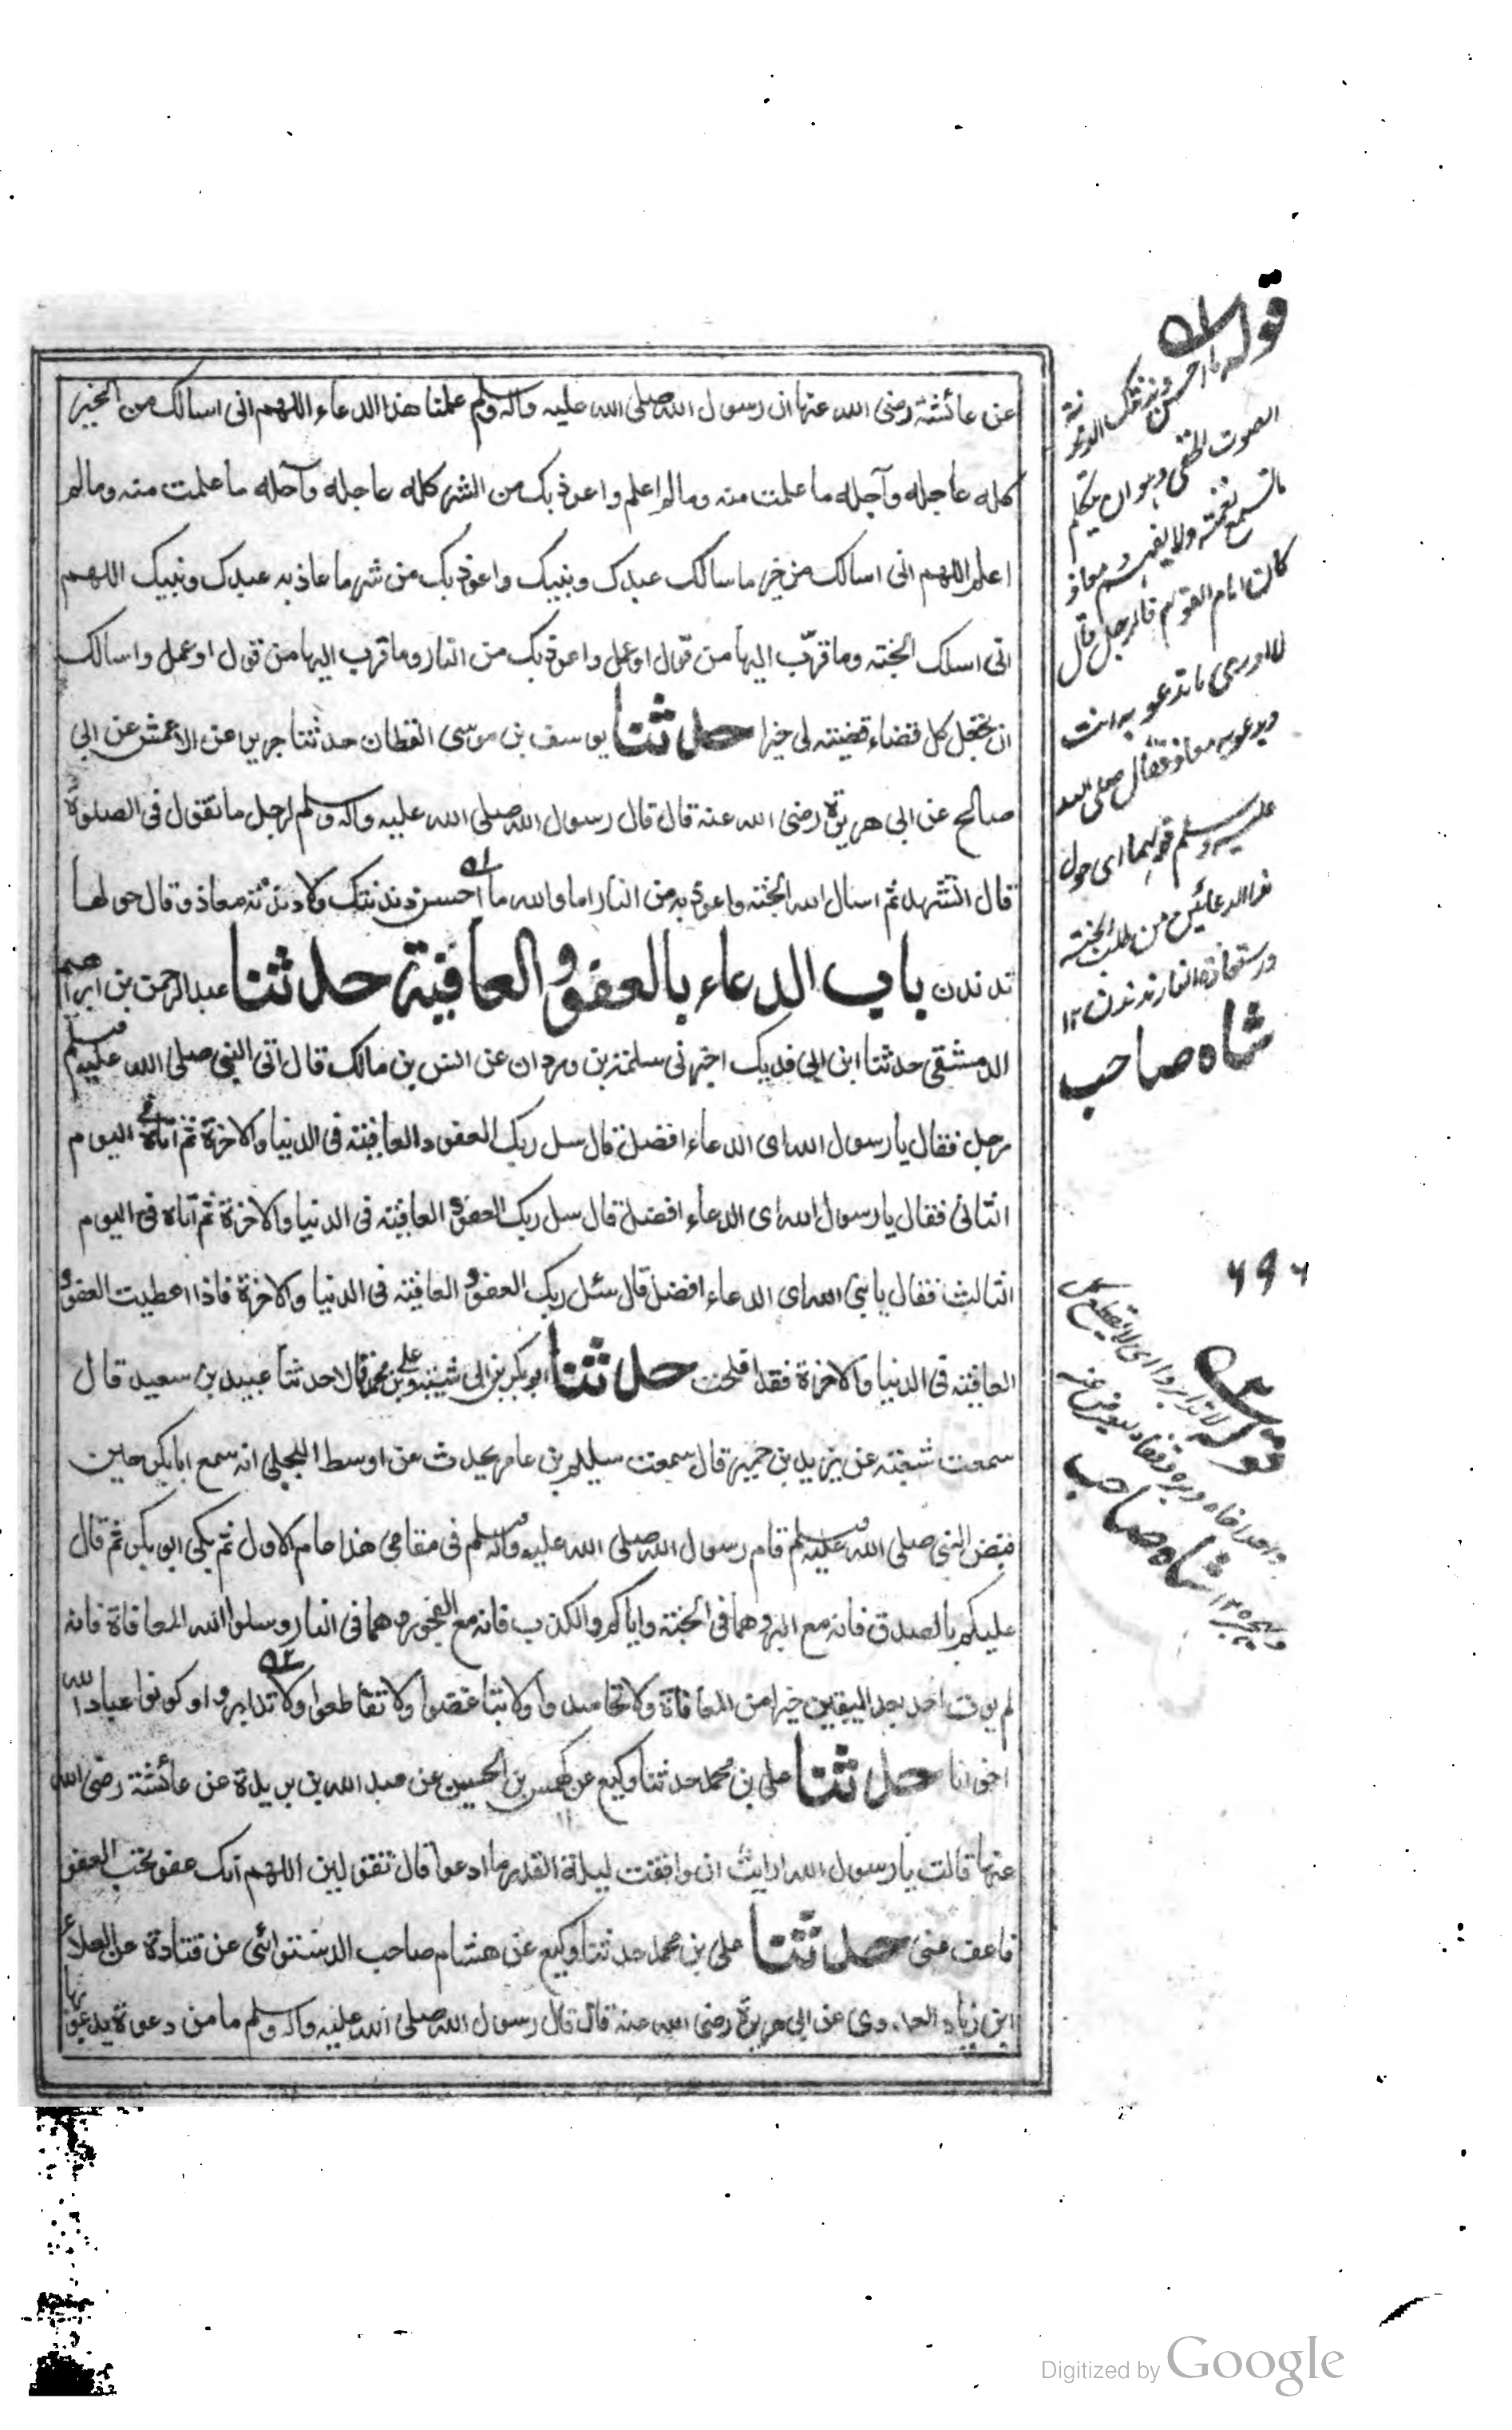 عن عائشة رضى الله عنها ان رسول الله صلى الله عليه وآله وسلم علمنا هذا الدعاء اللهم انى اسالك من الخير
كله عاجله وآجله ما علمت منه وما لم اعلم واعوذ بك من الشر كله عاجله وآجله ما علمت منه وما لم
اعلم اللهم انى اسالك من خير ما سالك عبدك ونبيك واعوذ بك من شر ما عاذ به عبدك ونبيك اللهم
انى اسلك الجنته وما قرّب اليها من قول او عمل واعوذ بك من النار وما قرب اليها من قول او عمل واسالك
ان تجعل كل قضاء قضيته لى خيرا حدثنا يوسف بن موسى القطان حدثنا جرير عن الاعمش عن ابى
صالح عن ابى هريرة رضى الله عنه قال قال رسول الله صلى الله عليه وآله وسلم لرجل ما تقول فى الصلوة
قال اتشهد ثم اسال الله الجنته واعوذ به من النار اما والله ما احسن دندنتك ولا دندنة معاذ وقال حولها
تدندن باب الدعاء بالعفو والعافية حدثنا عبدالرحمن بن ابراهيم
الدمشقى حدثنا ابن ابى فديك اخبرنى سلمة بن وردان عن انس بن مالك قال اتى النبى صلى الله عليه وسلم
رجل فقال يا رسول الله اى الدعاء افضل قال سل ربك العفو والعافيته فى الدنيا والاخرة ثم اتاه فى اليوم
الثانى فقال يا رسول الله اى الدعاء افضل قال سل ربك العفو والعافيته فى الدنيا والاخرة ثم اتاه فى اليوم
الثالث فقال يا نبى الله اى الدعاء افضل قال سئل ربك العفو و العافيته فى الدنيا والاخرة فاذا اعطيت العفو و
العافيته فى الدنيا والاخرة فقد افلحت حدثنا ابوبكر بن ابى شيبته وعلى بن محمد قالا حدثنا عبيد بن سعيد قال
سمعت شعبته عن يزيد بن خمير قال سمعت سليم بن عامر يحدث عن اوسط البجلى انه سمع ابابكر حين
قبض النبى صلى الله عليه وسلم قام رسول الله صلى الله عليه وآله وسلم فى مقامى هذا عام الاول ثم بكى ابو بكر ثم قال
عليكم بالصدق فانه مع البر وهما فى الجنته واياكم والكذب فانه مع الفجور وهما فى النار وسلوا الله المعافاة فانه
لم يوت احد بعد اليقين خيرا من المعافاة ولا تحاسدوا ولا تباغضوا ولا تقاطعوا ولا تدابروا وكونوا عباد الله
اخوانا حدثنا على بن محمد حدثنا وكيع عن كهمس بن الحسين عن عبد الله بن بريدة عن عائشة رضى الله
عنها قالت يا رسول الله ارايت ان وافقت ليلة القدر ما ادعوا قال تقولين اللهم انك عفو تحب العفو
فاعف عنى حدثنا على بن محمد حدثنا وكيع عن هشام صاحب الدستوائى عن قتادة عن العلاء
ابن زياد العدوى عن ابى هريرة رضى الله عنه قال قال رسول الله صلى الله عليه وآله وسلم ما من دعوة يدعو بها
قوله ما احسن دندنتك الدندنة
الصوت الخفى وهو ان يتكلم
ما تسمع نغمته ولا يفهم ومعاذ
كان امام القوم فالرجل قال
لا ادرى ما تدعو به انت
ويدعو به معاذ فقال صلى الله
عليه وسلم قولهما اى حول
هذا الدعائين من طلب الجنته
واستعاذة النار ندندن ١٢
شاه صاحب
٦٩٦
قوله لا تدابروا اى لا يقطع كل
واحد اخاه
شاه صاحب
Digitized by Google